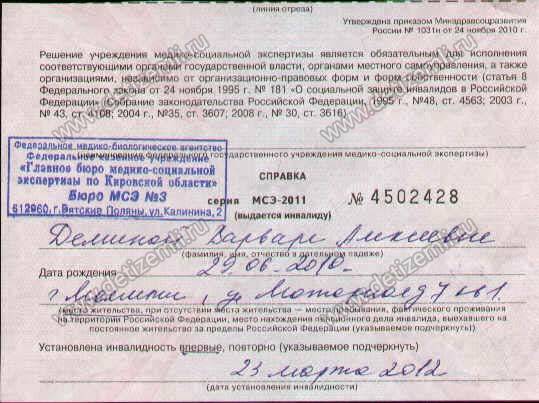 (линия отреза)
Утверждена приказом Минздравсоцразвития
России № 1031н от 24 ноября 2010 г.
Решение учреждения медико-социальной экспертизы является обязательным для исполнения
соответствующими органами государственной власти, органами местного самоуправления, а также
организациями, независимо от организационно-правовых форм и форм собственности (статья 8
Федерального закона от 24 ноября 1995 г. № 181 «О социальной защите инвалидов в Российской
Федерации» (Собрание законодательства Российской Федерации, 1995 г., №48, ст. 4563; 2003 г.,
№ 43, ст. 4108; 2004 г., №35, ст. 3607; 2008 г., № 30, ст. 3616)
Федеральное медико-биологическое агентство
Федеральное казенное учреждение
«Главное бюро медико-социальной
экспертизы по Кировской области»
Бюро МСЭ №3
612960, г. Вятские Поляны, ул. Калинина, 2
(наименование федерального государственного учреждения медико-социальной экспертизы)
СПРАВКА
серия МСЭ-2011 № 4502428
(выдается инвалиду)
Варваре Алексеевне
(фамилия, имя, отчество в дательном падеже)
Дата рождения 29.06.2010
г.
(место жительства, при отсутствии места жительства — место пребывания, фактического проживания
на территории Российской Федерации, место нахождения пенсионного дела инвалида, выехавшего на
постоянное жительство за пределы Российской Федерации (указываемое подчеркнуть)
Установлена инвалидность впервые, повторно (указываемое подчеркнуть)
23 марта 2012
(дата установления инвалидности)
www.detizemli.ru